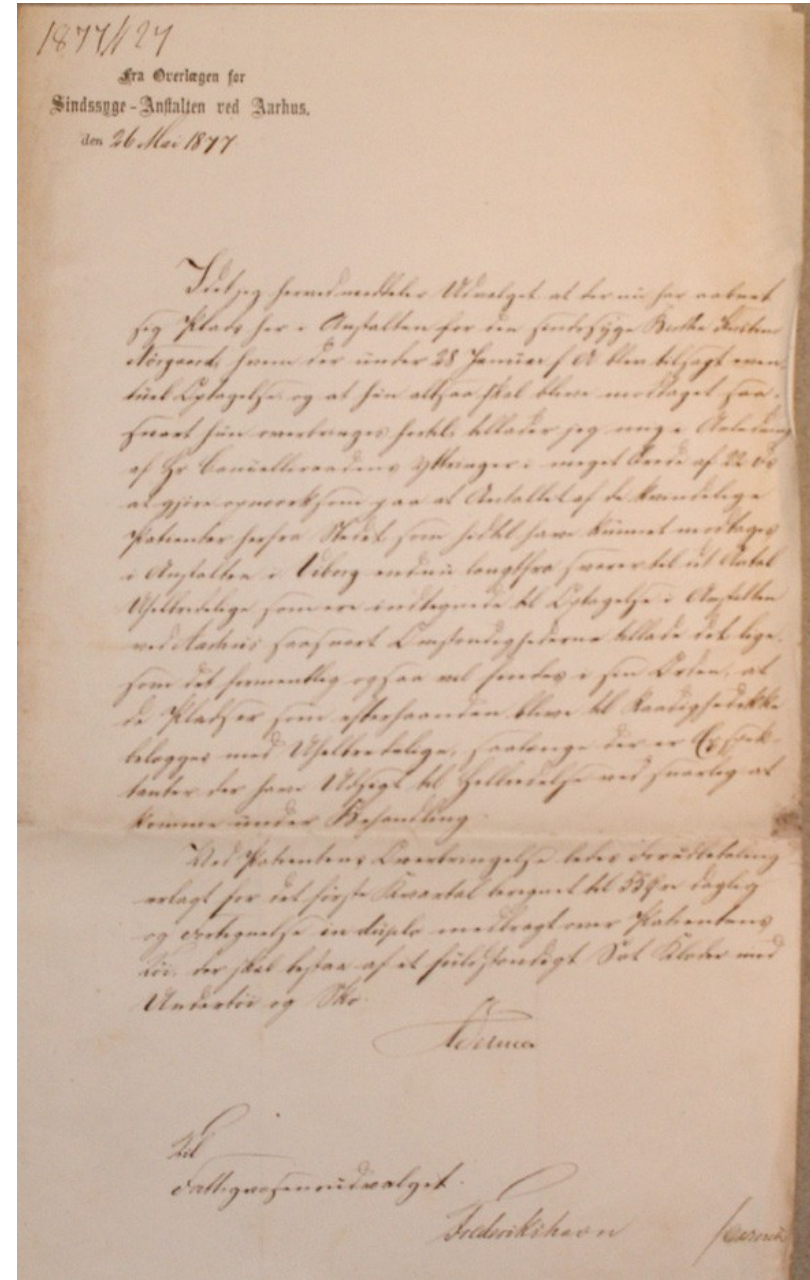 1877/127
Fra Overlægen for
Sindssyge-Anstalten ved Aarhus,
den 26 Mai 1877
Idet jeg herved meddeler Udvalget at der nu har aabnet
sig Plads her i Anstalten for den sindssyge
Nörgaard, hvem der under 28 Januar f A blev tilsagt even-
tuel Optagelse, og at hun altsaa skal blive modtaget saa-
snart hun overbringes hertil, tillader jeg mig i Anledning
af Hr Cancelliraadens Yttringer i meget ærede af 22 ds
at gjöre opmærksom paa at Antallet af de kvindelige
Patienter herfra Stedet som hidtil have kunnet modtages
i Anstalten i Viborg endnu langtfra svarer til det Antal
Uhelbredelige som ere indtegnede til Optagelse i Anstalten
ved Aarhus saasnart Omstændighederne tillade det lige-
som det formentlig ogsaa vil findes i sin Orden, at
de Pladser som efterhaanden blive til Raadighed ikke
belægges med Uhelbredelige, saalænge der er Expek-
tanter der have Udsigt til Helbredelse ved snarlig at
komme under Behandling.
Ved Patientens Overbringelse bedes Forudbetaling
erlagt for det förste Kvartal beregnet til 55 Öre daglig
og Fortegnelse in duplo medbragt over Patientens
Töi, der skal bestaa af et fuldstændigt Sæt Klæder med
Undertöi og Sko.
Til
Fattigvæsensudvalget.
Frederikshavn